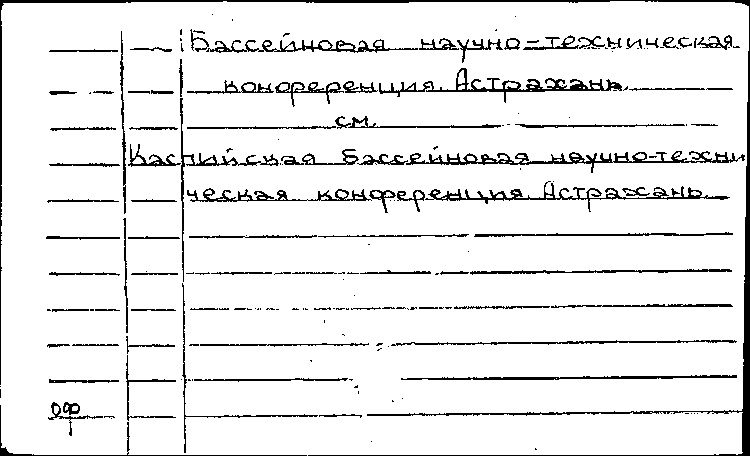 Бассейновая научно-техническая
конференция. Астрахань.
см.
Каспийская бассейновая научно-техни
ческая конференция. Астрахань
оф